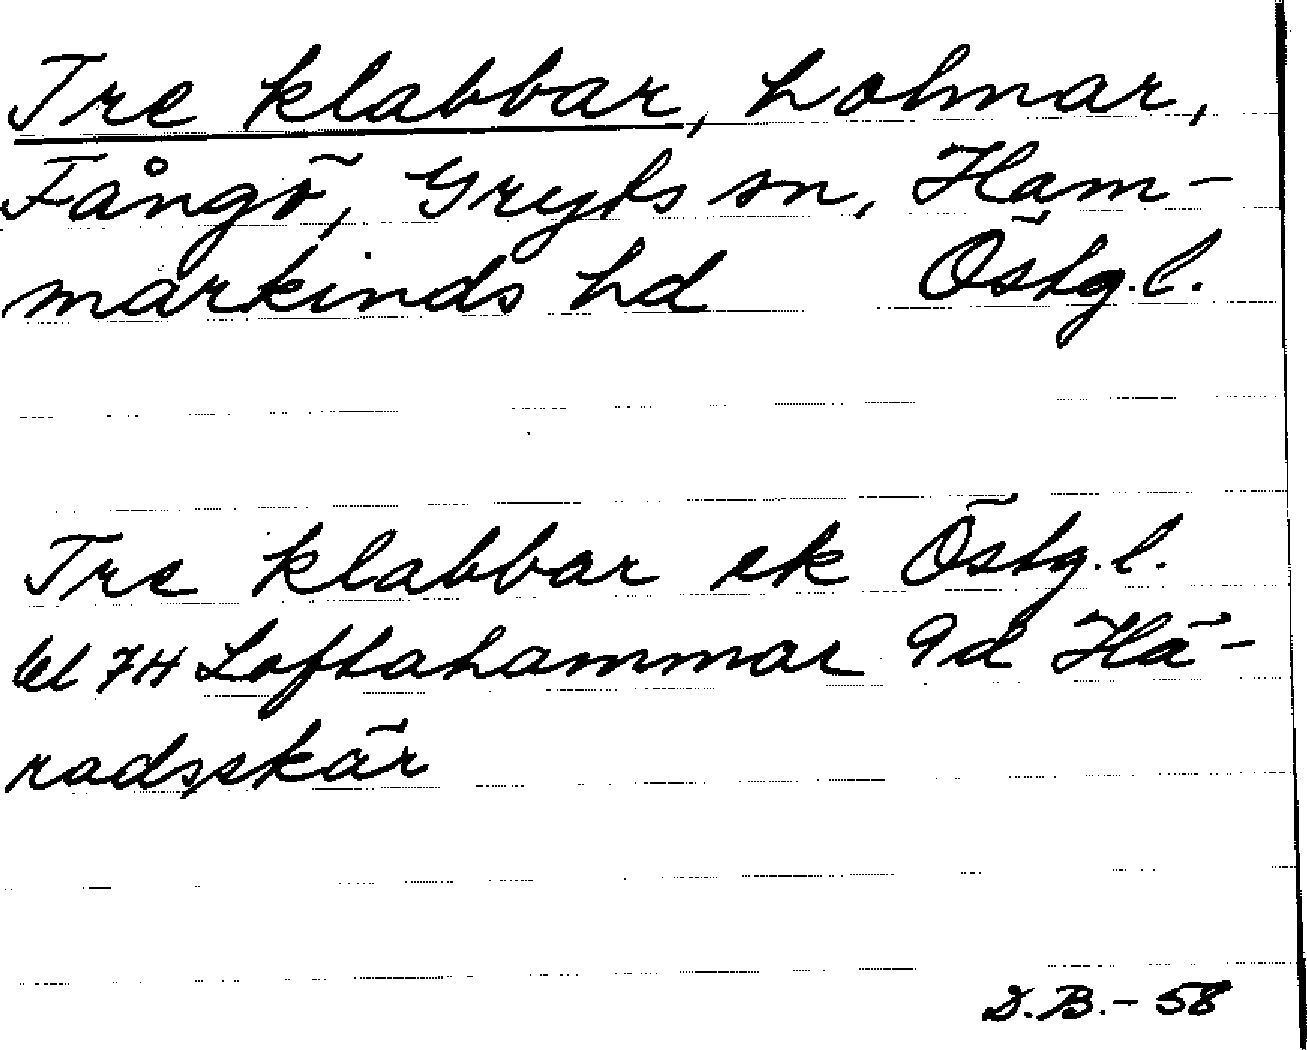 Tre klabbar, holmar,
Fångö, Gryts sn, Ham-
markinds hd Östg.l.
Tre klabbar ek Östg.l.
bl 74 Loftahammar 9d Hä-
radsskär
D.B.- 58